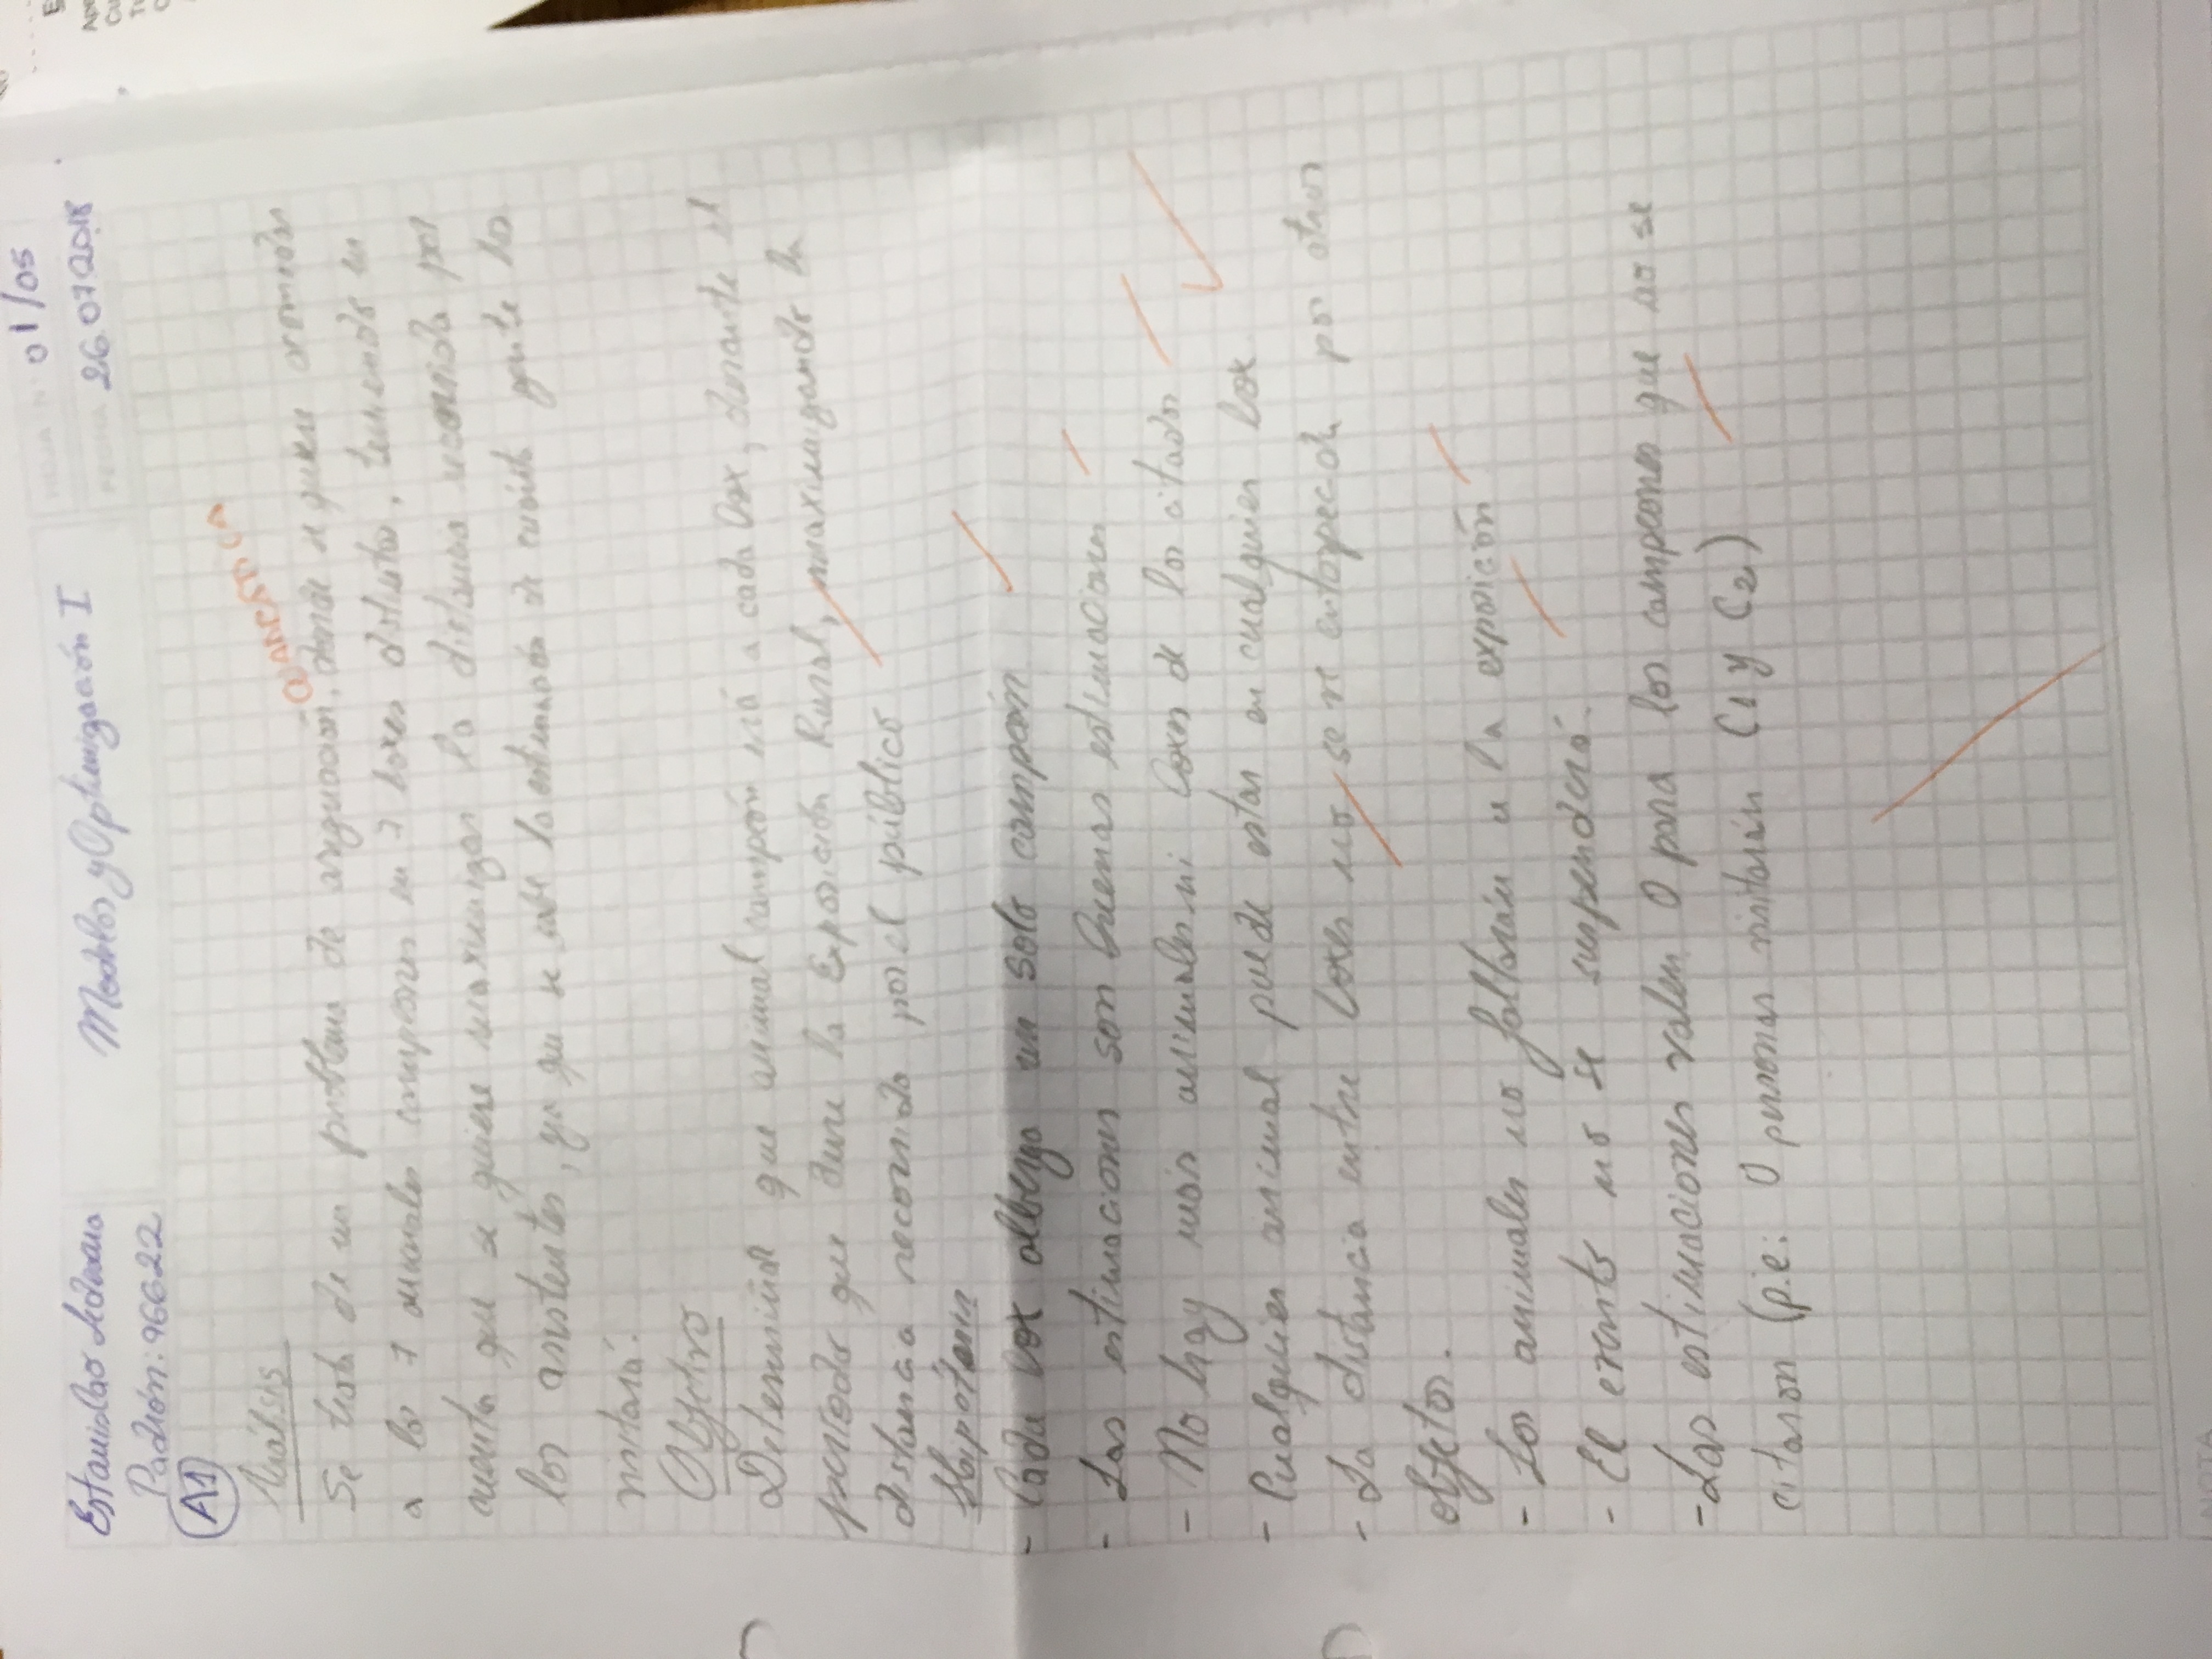 Estanislao Ledesma
Modelos y Optimización I
HOJA Nº 01/05
Padrón: 96622
FECHA 26.07.2018
A1
Análisis
CUADRÁTICA
Se trata de un problema de asignación, donde se quiere acomodar
a los 7 animales campeones en 7 boxes distintos, teniendo en
cuenta que se quiere maximizar la distancia recorrida por
los asistentes, ya que se sabe la estimación de cuánta gente los
visitará.
Objetivo
Determinar que animal campeón irá a cada box, durante el
período que dure la Exposición Rural, maximizando la
distancia recorrida por el público
Hipótesis
- Cada box alberga un solo campeón
- Las estimaciones son buenas estimaciones
- No hay más animales ni boxes de los citados
- Cualquier animal puede estar en cualquier box
- La distancia entre boxes no se ve entorpecida por otros
objetos.
- Los animales no faltarán a la exposición
- El evento no se suspenderá.
- Las estimaciones valen 0 para los campeones que no se
citaron (p.e: 0 personas visitarán C1 y C2)
NOTA